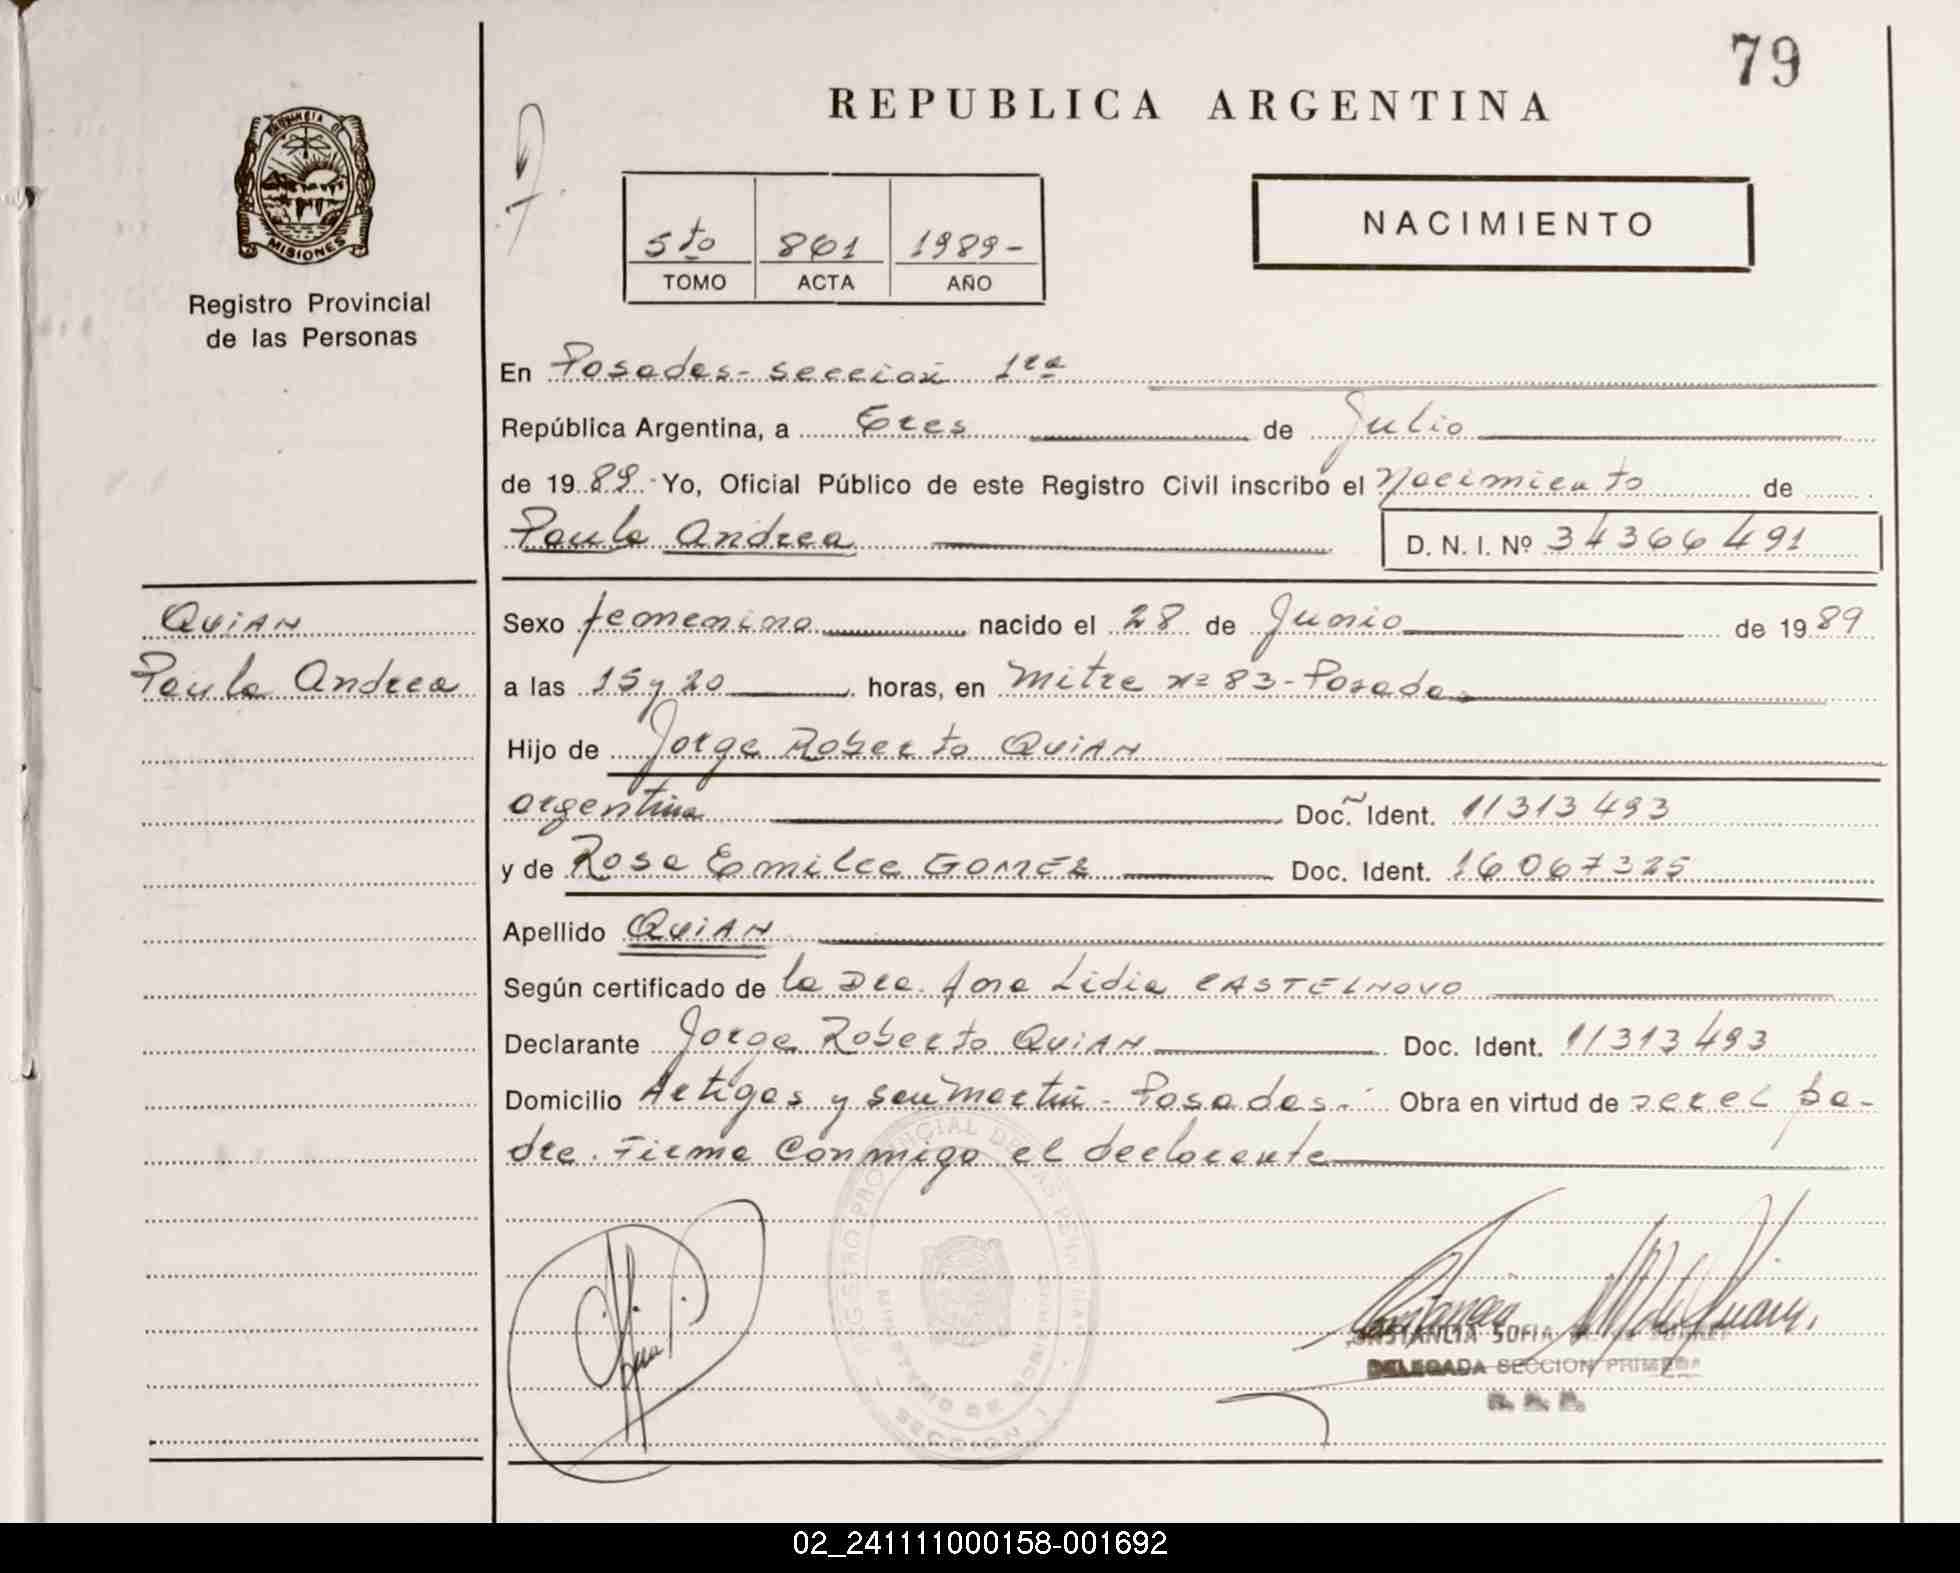 79
REPUBLICA ARGENTINA
PROVINCIA DE
MISIONES
Registro Provincial
de las Personas
5to 861 1989-
TOMO ACTA AÑO
NACIMIENTO
En Posadas - sección 1ra
República Argentina, a tres de Julio
de 1989 - Yo, Oficial Público de este Registro Civil inscribo el Nacimiento de
Paula Andrea D. N. I. Nº 34366491
QUiAN
Paula Andrea
Sexo femenino nacido el 28 de Junio de 1989
a las 15 y 20 horas, en Mitre nº 83 - Posadas
Hijo de Jorge Roberto QUiAN
argentina Doc. Ident. 11313493
y de Rosa Emilce GOMEZ Doc. Ident. 16067325
Apellido QUiAN
Según certificado de la Dra. Ana Lidia CASTELNOVO
Declarante Jorge Roberto QUiAN Doc. Ident. 11313493
Domicilio Artigas y San Martín - Posadas.- Obra en virtud de ser el pa-
dre. Firma Conmigo el declarante
REGISTRO PROVINCIAL DE LAS PERSONAS
MINISTERIO DE GOBIERNO
SECCION 1
CONSTANCIA SOFIA
DELEGADA SECCION PRIMERA
R. P. P.
02_241111000158-001692